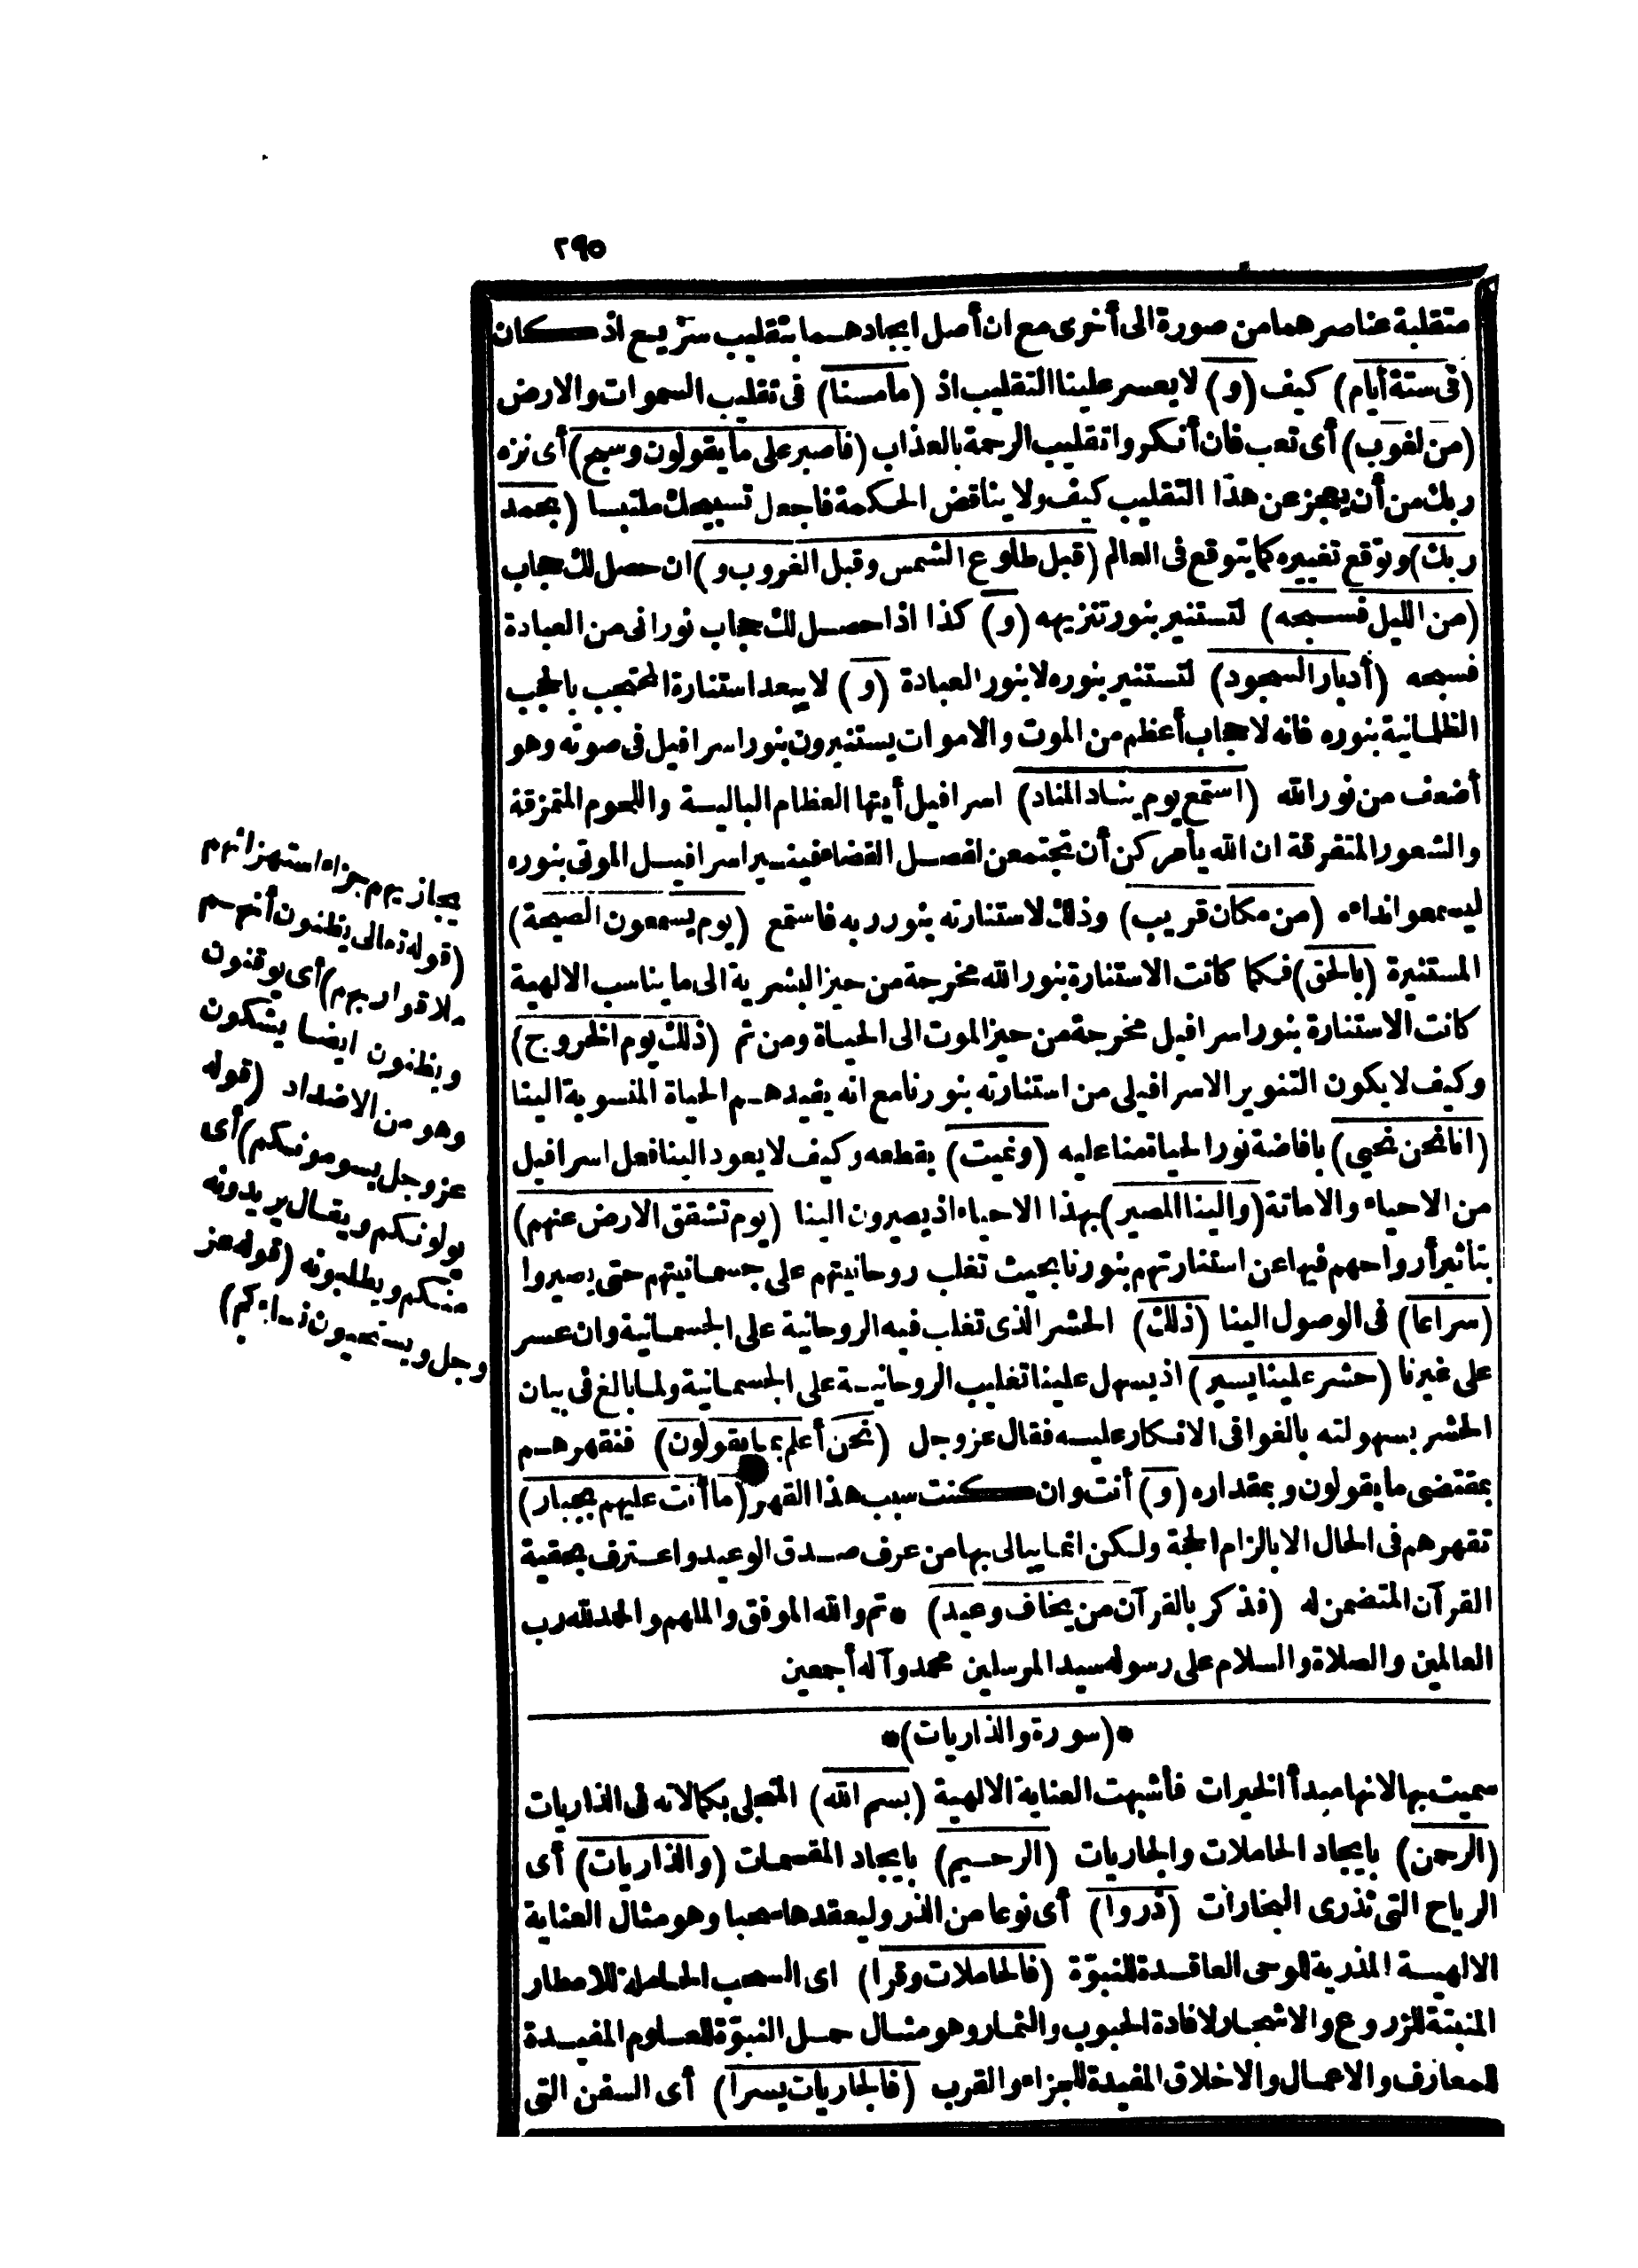 ٢٩٥
متقلبة عناصرهما من صورة الى أخرى مع ان أصل ايجادهما بتقليب سريع اذ كان
(فى ستة أيام) كيف (و) لا يعسر علينا التقليب اذ (مامسنا) فى تقليب السموات والارض
(من لغوب) أى تعب فان أنكروا تقليب الرحمة بالعذاب (فاصبر على ما يقولون وسبح) أى نزه
ربك من أن يعجز عن هذا التقليب كيف ولا يناقض الحكمة فاجعل تسبيحك ملتبسا (بحمد
ربك) وتوقع تغييره كما يتوقع فى العالم (قبل طلوع الشمس وقبل الغروب و) ان حصل لك حجاب
(من الليل فسبحه) لتستنير بنور تنزيهه (و) كذا اذا حصل لك حجاب نورانى من العبادة
فسبحه (أدبار السجود) لتستنير بنوره لا بنور العبادة (و) لا يبعد استنارة المحتجب بالحجب
الظلمانية بنوره فانه لا حجاب أعظم من الموت والاموات يستنيرون بنور اسرافيل فى صوته وهو
أضعف من نور الله (استمع يوم يناد المناد) اسرافيل أيتها العظام البالية واللحوم المتمزقة
والشعور المتفرقة ان الله يأمركن أن تجتمعن لفصل القضاء فينير اسرافيل الموتى بنوره
ليسمعوا نداءه (من مكان قريب) وذلك لاستنارته بنور ربه فاستمع (يوم يسمعون الصيحة)
المستنيرة (بالحق) فكما كانت الاستنارة بنور الله مخرجة من حيز البشرية الى ما يناسب الالهية
كانت الاستنارة بنور اسرافيل مخرجة من حيز الموت الى الحياة ومن ثم (ذلك يوم الخروج)
وكيف لا يكون التنوير الاسرافيلى من استنارته بنورنا مع انه يفيدهم الحياة المنسوبة الينا
(انا نحن نحيي) بافاضة نور الحياة منا عليه (ونميت) بقطعه وكيف لا يعود الينا فعل اسرافيل
من الاحياء والاماتة (والينا المصير) بهذا الاحياء اذ يصيرون الينا (يوم تشقق الارض عنهم)
بتأثير أرواحهم فيها عن استنارتهم بنورنا بحيث تغلب روحانيتهم على جسمانيتهم حتى يصيروا
(سراعا) فى الوصول الينا (ذلك) الحشر الذى تغلب فيه الروحانية على الجسمانية وان عسر
على غيرنا (حشر علينا يسير) اذ يسهل علينا تغليب الروحانية على الجسمانية ولما بالغ فى بيان
الحشر بسهولته بالغوا فى الانكار عليه فقال عز وجل (نحن أعلم بما يقولون) فنقهرهم
بمقتضى ما يقولون وبمقداره (و) أنت وان كنت سبب هذا القهر (ما أنت عليهم بجبار)
تقهرهم فى الحال الا بالزام الحجة ولكن انما يبالى بها من عرف صدق الوعيد واعترف بحقية
القرآن المتضمن له (فذكر بالقرآن من يخاف وعيد) * تم والله الموفق والملهم والحمد لله رب
العالمين والصلاة والسلام على رسوله سيد المرسلين محمد وآله أجمعين
*(سورة والذاريات)*
سميت بها لانها مبدأ الخيرات فأشبهت العناية الالهية (بسم الله) المتجلى بكمالاته فى الذاريات
(الرحمن) بايجاد الحاملات والجاريات (الرحيم) بايجاد المقسمات (والذاريات) أى
الرياح التى تذرى البخارات (ذروا) أى نوعا من الذر وليعقدها سحبا وهو مثال العناية
الالهية المذرية للوحى العاقدة للنبوّة (فالحاملات وقرا) اى السحب الحاملة للامطار
المنبتة للزروع والاشجار لافادة الحبوب والثمار وهو مثال حمل النبوّة للعلوم المفيدة
للمعارف والاعمال والاخلاق المفيدة للجزاء والقرب (فالجاريات يسرا) أى السفن التى
يجازيهم جزاء استهزائهم
(قوله تعالى يظنون أنهم
ملاقوا ربهم) أى يوقنون
ويظنون ايضا يشكون
وهو من الاضداد (قوله
عز وجل يسومونكم) أى
يولونكم ويقال يريدونه
منكم ويطلبونه (قوله عز
وجل ويستحيون نساءكم)